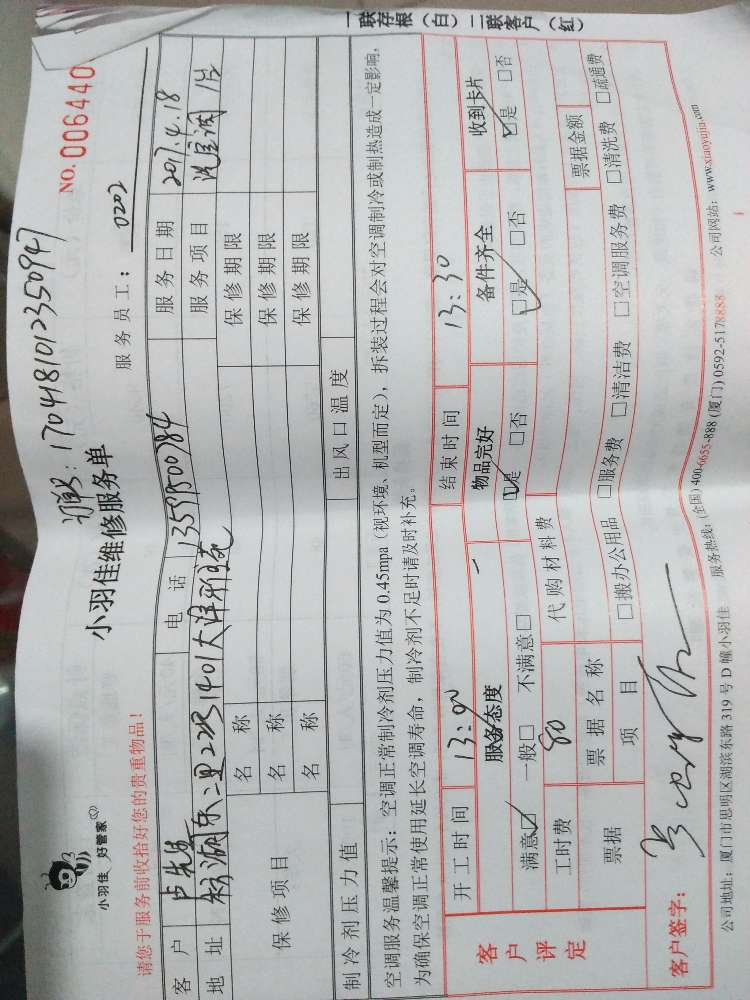 一联存根（白）二联客户（红）
小羽佳 好管家
NO. 006440
1704181012350947
小羽佳维修服务单
请您于服务前收拾好您的贵重物品！
服务员工： 0202
客户 卢先生 电话 服务日期 2017.4.18
地址 东二里 1401大洋 服务项目 洗空调 1台
保修项目 名称 保修期限
名称 保修期限
名称 保修期限
制冷剂压力值 出风口温度
空调服务温馨提示：空调正常制冷剂压力值为0.45mpa（视环境、机型而定），拆装过程会对空调制冷或制热造成一定影响，
为确保空调正常使用延长空调寿命，制冷剂不足时请及时补充。
客户评定
开工时间 13:00 结束时间 13:30
服务态度 物品完好 备件齐全 收到卡片
满意☑ 一般□ 不满意□ ☑是 □否 ☑是 □否 ☑是 □否
工时费 80 代购材料费
票据 票据名称 票据金额
项目 □搬办公用品 □服务费 □清洁费 □空调服务费 □清洗费 □疏通费
客户签字：
公司地址：厦门市思明区湖滨东路319号D幢小羽佳 服务热线：(全国) 400-6655-888 (厦门) 0592-5178888 公司网站：www.xiaoyujia.com